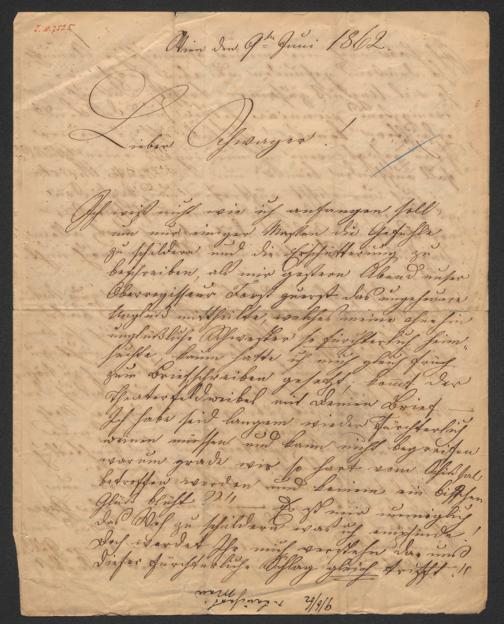 I. N. 7525
Wien den 9ten Juni 1862.
Lieber Schwager!
Ich weiß nicht wie ich anfangen soll
um nur einiger Maßen die Gefühle
zu schildern und die Erschütterung zu
beschreiben, als mir gestern Abend unser
Oberregisseur zuerst das ungeheuere
Unglück mittheilte, welches meine ohnehin
unglückliche Schwester so fürchterlich heim-
suchte. Kaum hatte ich mich gleich früh
zum Briefschreiben gesetzt, kommt der
Theaterfeldweibel mit Deinen Brief —
Ich habe seid langem wieder fürchterlich
weinen müssen und kann nicht begreifen
warum grade wir so hart vom Schicksal
betroffen werden und keinem ein bischen
Glück blüht ??!! Es ist mir unmöglich
das Weh zu schildern was ich empfinde!
Doch werdet Ihr mich verstehn da uns
dieser fürchterliche Schlag gleich trifft!!
9/6/62